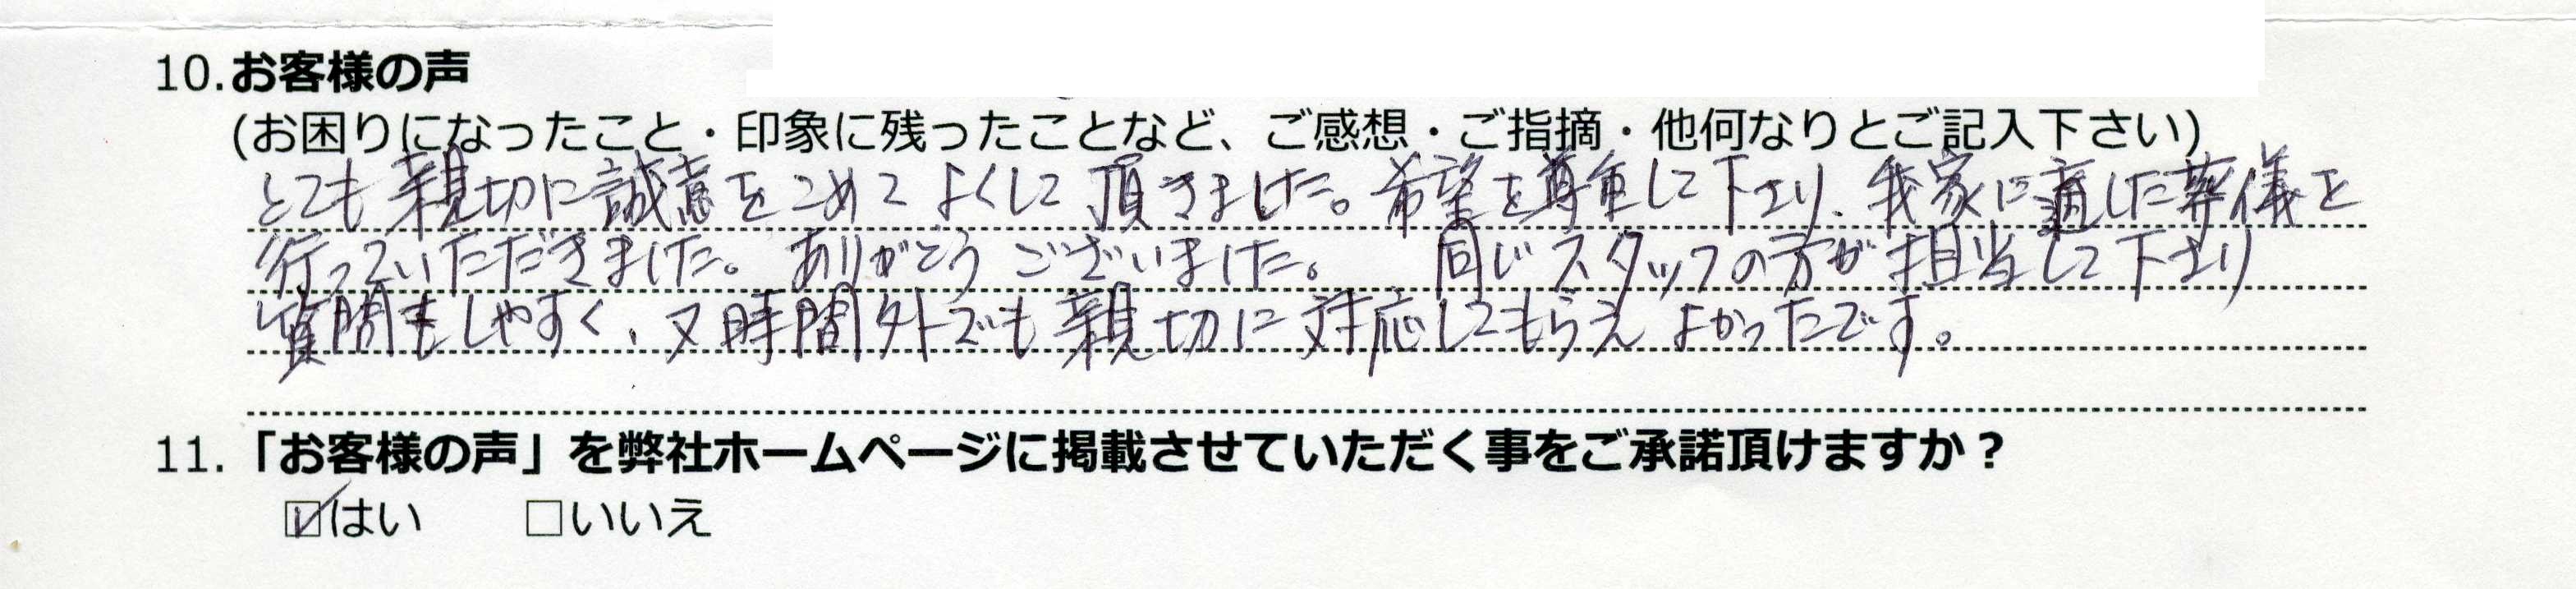 10.お客様の声
(お困りになったこと・印象に残ったことなど、ご感想・ご指摘・他何なりとご記入下さい)
とても親切に誠意をこめてよくして頂きました。希望を尊重して下さり、我家に適した葬儀を
行っていただきました。ありがとうございました。 同じスタッフの方が担当して下さり
質問もしやすく、又時間外でも親切に対応してもらえよかったです。
11.「お客様の声」を弊社ホームページに掲載させていただく事をご承諾頂けますか？
☑はい □いいえ